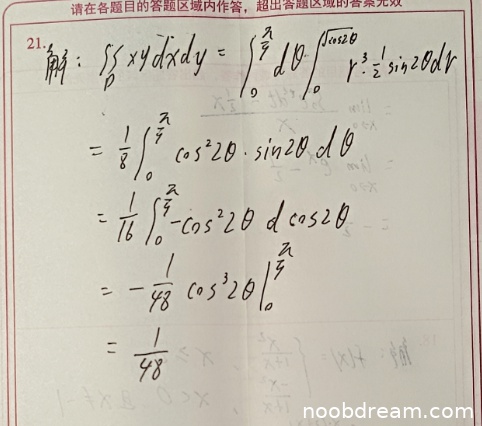 请在各题目的答题区域内作答，超出答题区域的答案无效
21.
解: ∬_D xy dxdy = ∫_0^{π/4} dθ ∫_0^{√cos2θ} r³·½ sin2θ dr
= 1/8 ∫_0^{π/4} cos²2θ · sin2θ dθ
= 1/16 ∫_0^{π/4} -cos²2θ d cos2θ
= -1/48 cos³2θ |_0^{π/4}
= 1/48
noobdream.com